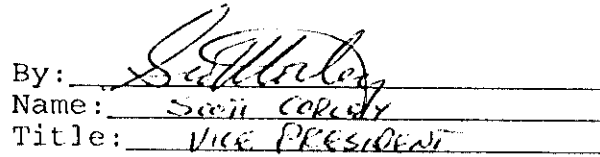 By:
Name: Scott
Title: VICE PRESIDENT